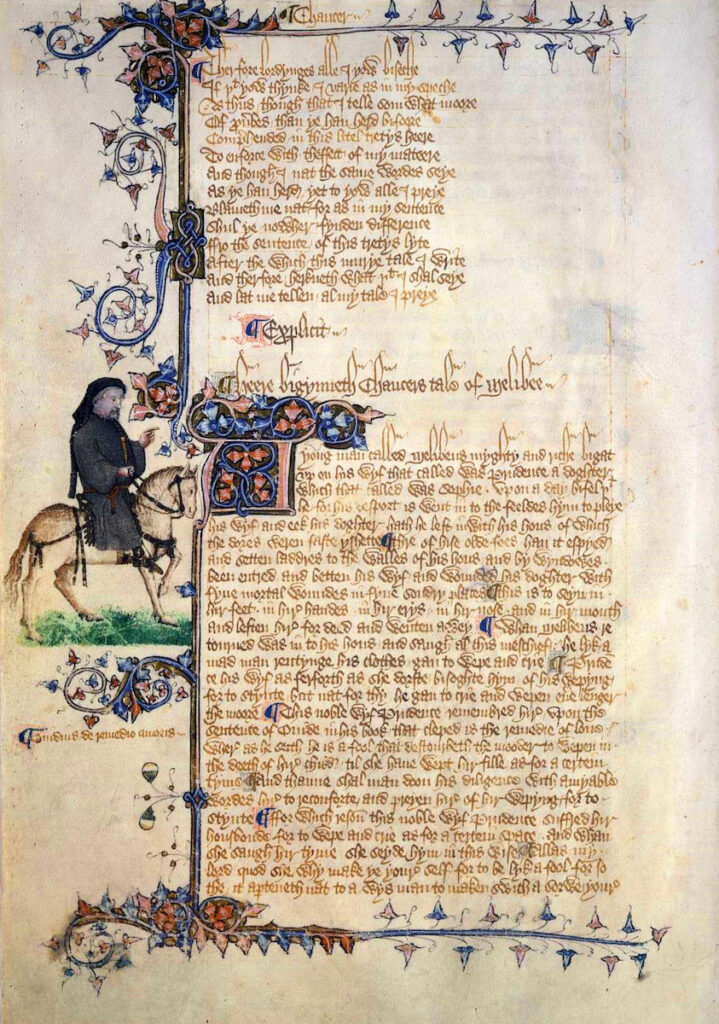 Chaucer
¶ Therfore lordynges alle I yow biseche
If þt yow thynke I varie as in my speche
As thus though that I telle som what moore
Of prouerbes than ye han herd bifoore
Comprehended in this litel tretys heere
To enforce with theffect of my mateere
And though I nat the same wordes seye
As ye han herd yet to yow alle I preye
Blameth me nat for as in my sentence
Shul ye nowher fynden difference
ffro the sentence of this tretys lyte
After the which this murye tale I write
And therfore herkneth what þt I shal seye
And lat me tellen al my tale I preye
¶ Explicit
Heere bigynneth Chaucers tale of Melibee
A yong man called Melibeus myghty and riche bigat
vp on his wyf that called was Prudence a doghter
which that called was Sophie. vpon a day bifel þt
he for his desport is went in to the feeldes hym to pleye
his wyf and eek his doghter hath he left in with his hous of which
the dores weren faste yshette ¶ Thre of his olde foes han it espyed
and setten laddres to the walles of his hous and by wyndowes
been entred and betten his wyf and wounded his doghter with
fyue mortal woundes in fyue sondry places ¶ This is to seyn in
hir feet. in hir handes. in hir erys. in hir nose. and in hir mouth
and leften hir for deed and wenten awey ¶ Whan Melibeus re
tourned was in to his hous and saugh al this meschief. he lyk a
mad man rentynge his clothes. gan to wepe and crie ¶ Prude
ce his wyf as ferforth as she dorste bisoghte hym of his wepyng
for to stynte but nat for thy he gan to crie and wepen euere lenger
the moore ¶ This noble wyf Prudence remembred hir vpon the
sentence of Ouide in his book that cleped is the remedie of loue
Wher as he seith he is a fool that destourbeth the mooder to wepen in
the deeth of hir child til she haue wept hir fille as for a certein
tyme And thanne shal man doon his diligence with amyable
wordes hir to reconforte and preyen hir of hir wepyng for to
stynte ¶ ffor which reson this noble wyf Prudence suffred hir
housbonde for to wepe and crie as for a certein space and whan
she saugh hir tyme she seyde hym in this wise Allas my
lord quod she why make ye youre self for to be lyk a fool for so
the it aperteneth nat to a wys man to maken swich a sorwe youre
¶ Ouidius de remedio amoris